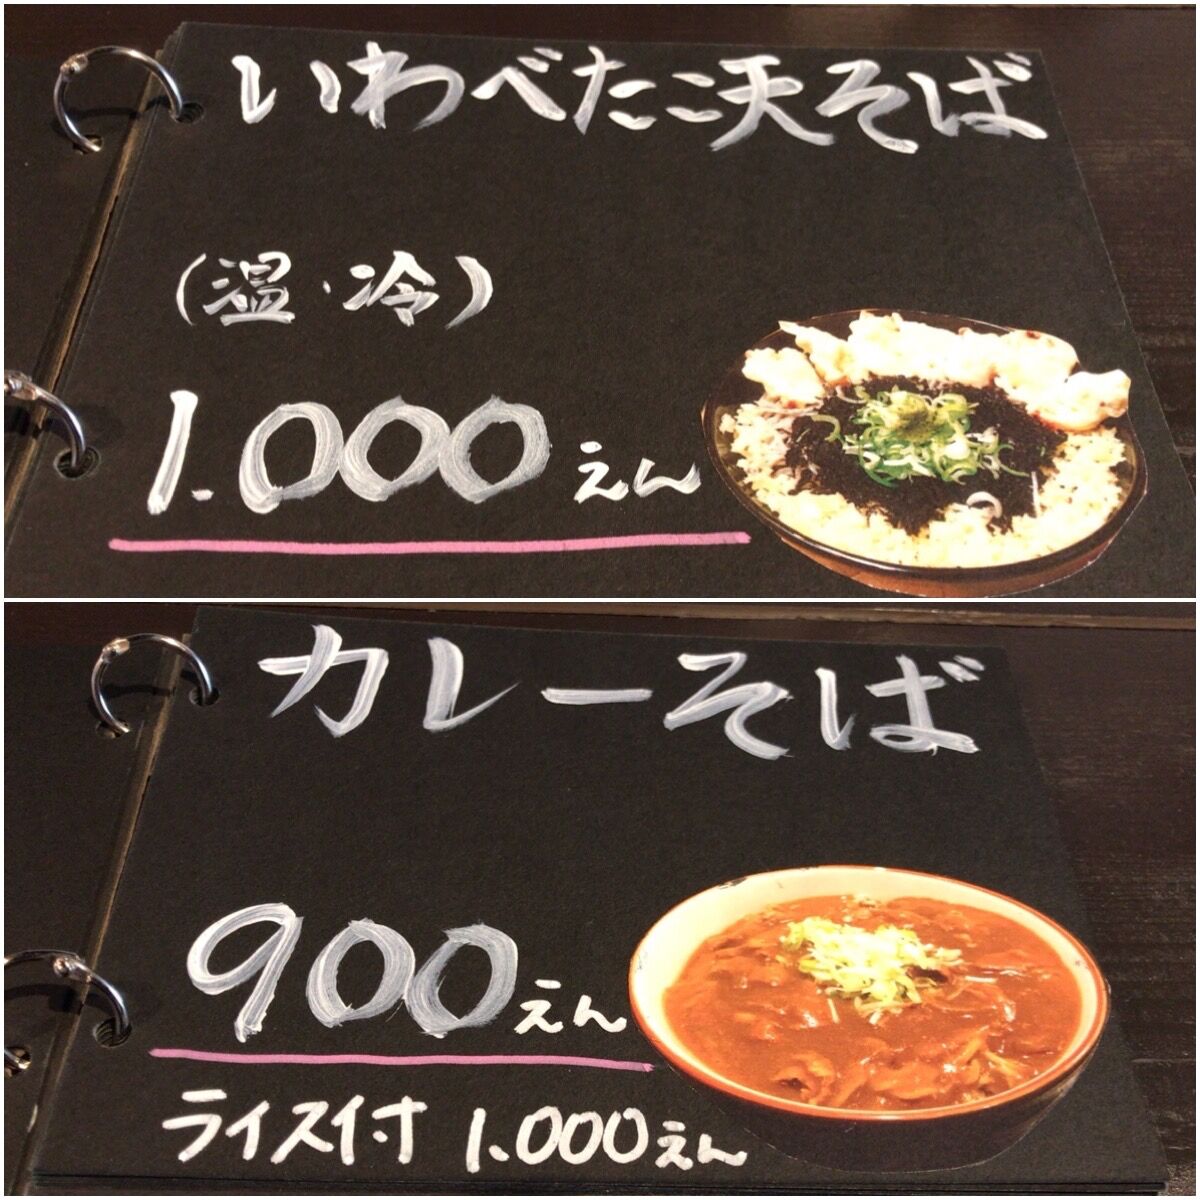 いわべたこ天そば
(温・冷)
1.000えん
カレーそば
900えん
ライス付 1.000えん